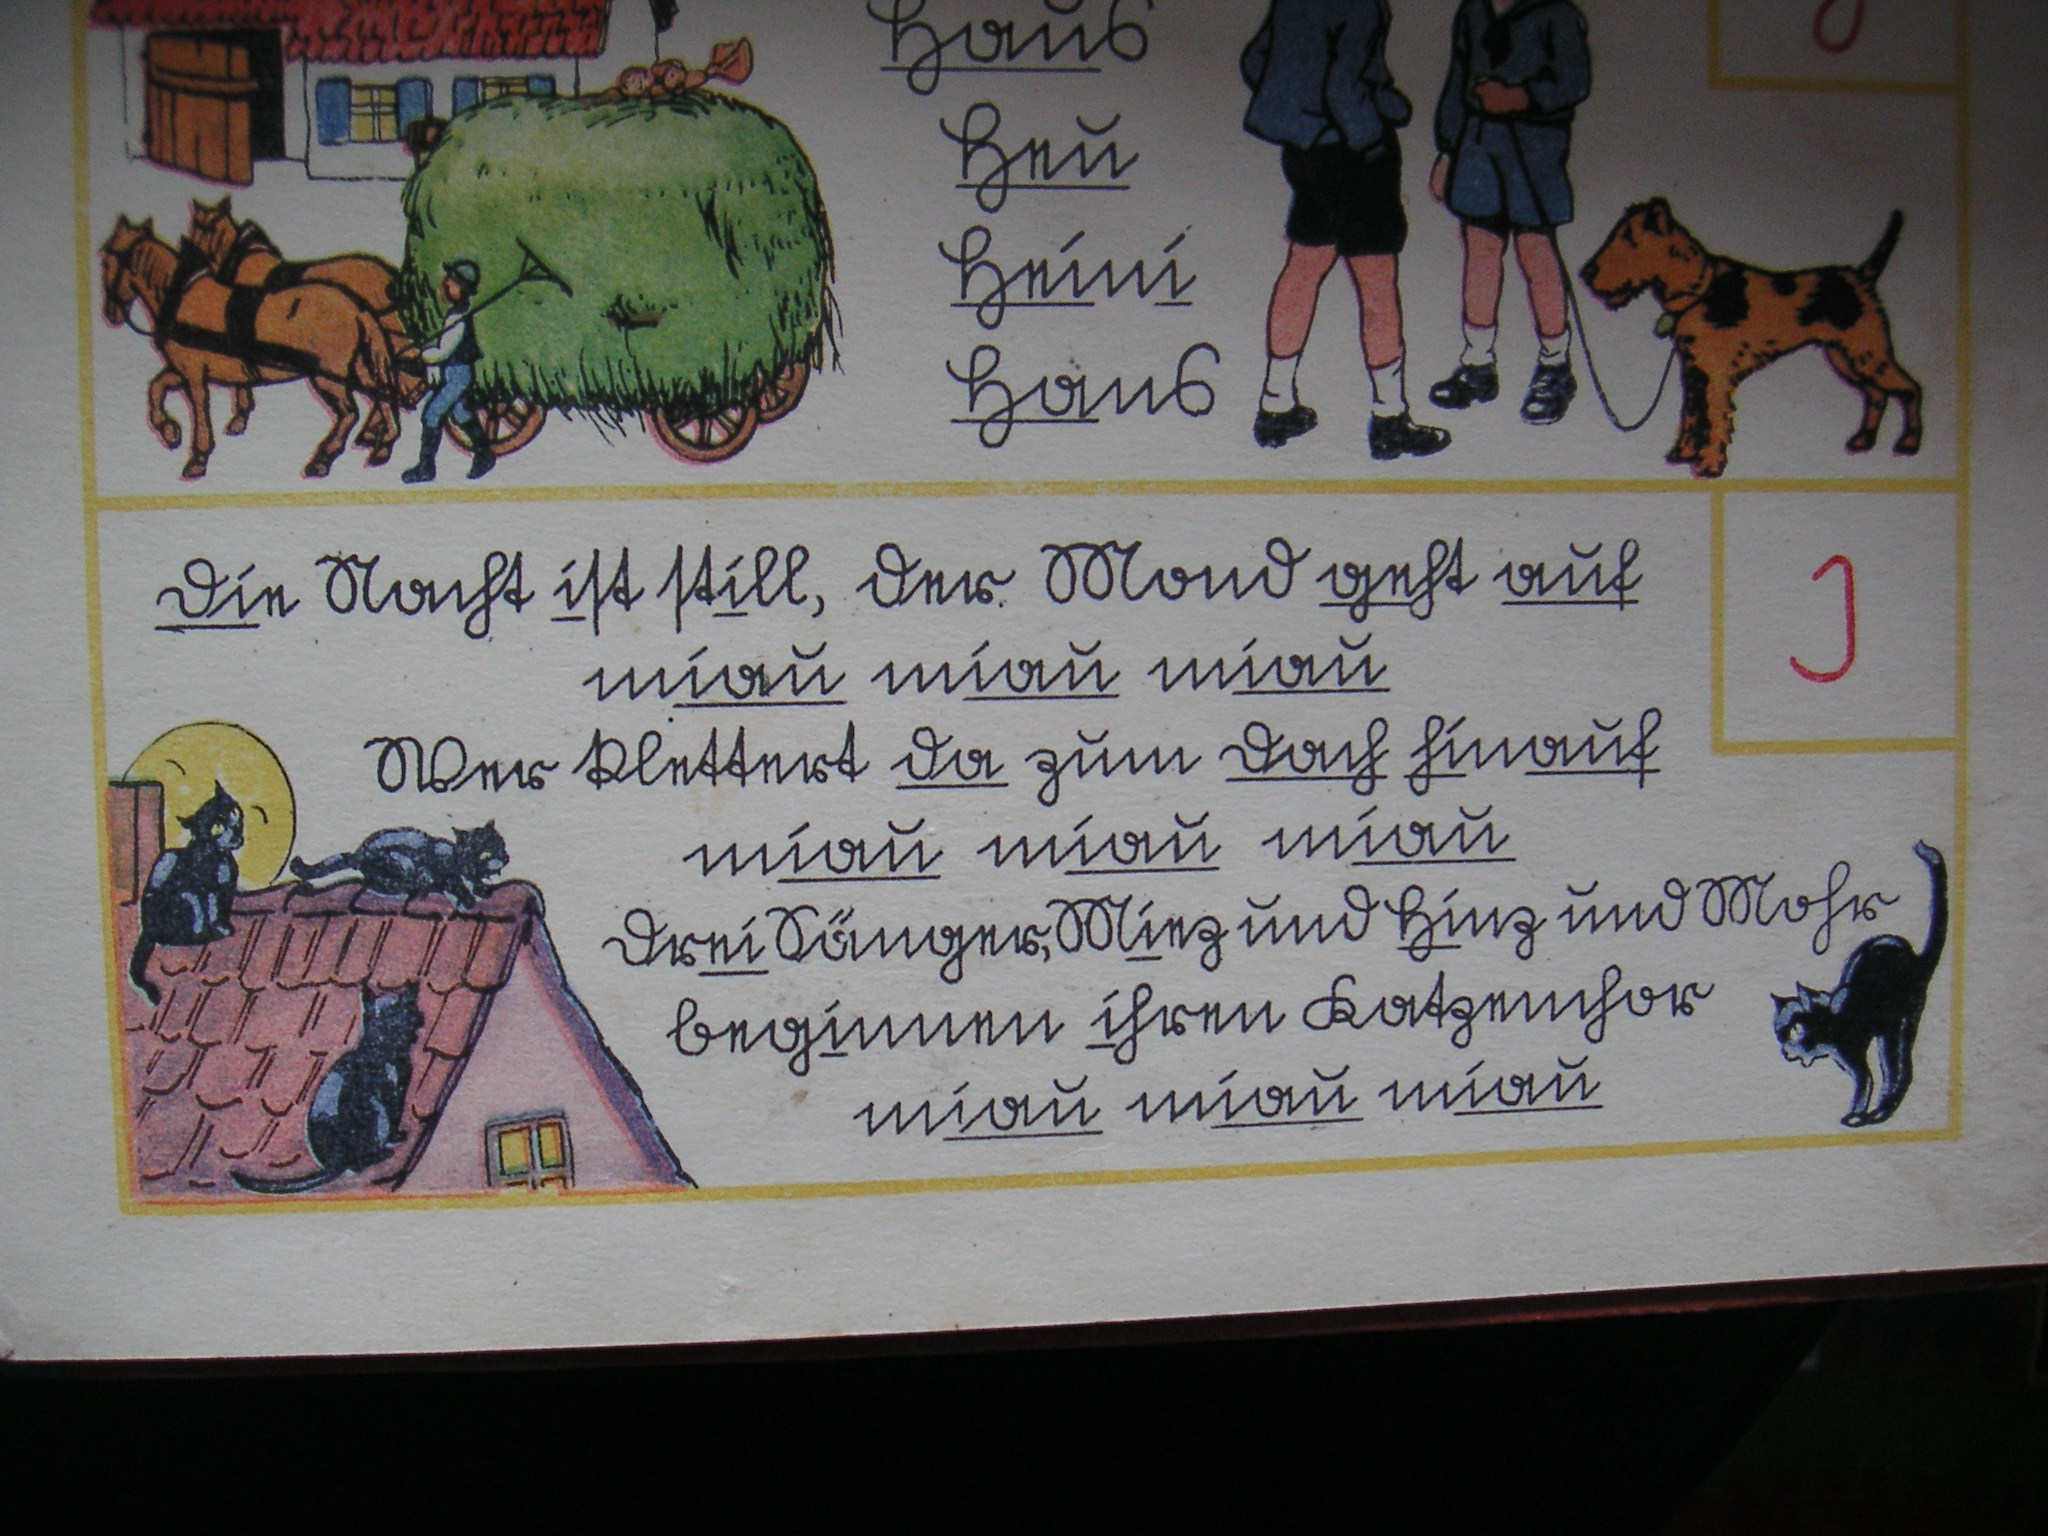 Haus
Heu
Heini
Hans
Die Nacht ist still, der Mond geht auf
I
miau miau miau
Wer klettert da zum Dach hinauf
miau miau miau
Drei Sänger, Miez und Hinz und Mohr
beginnen ihren Katzenchor
miau miau miau